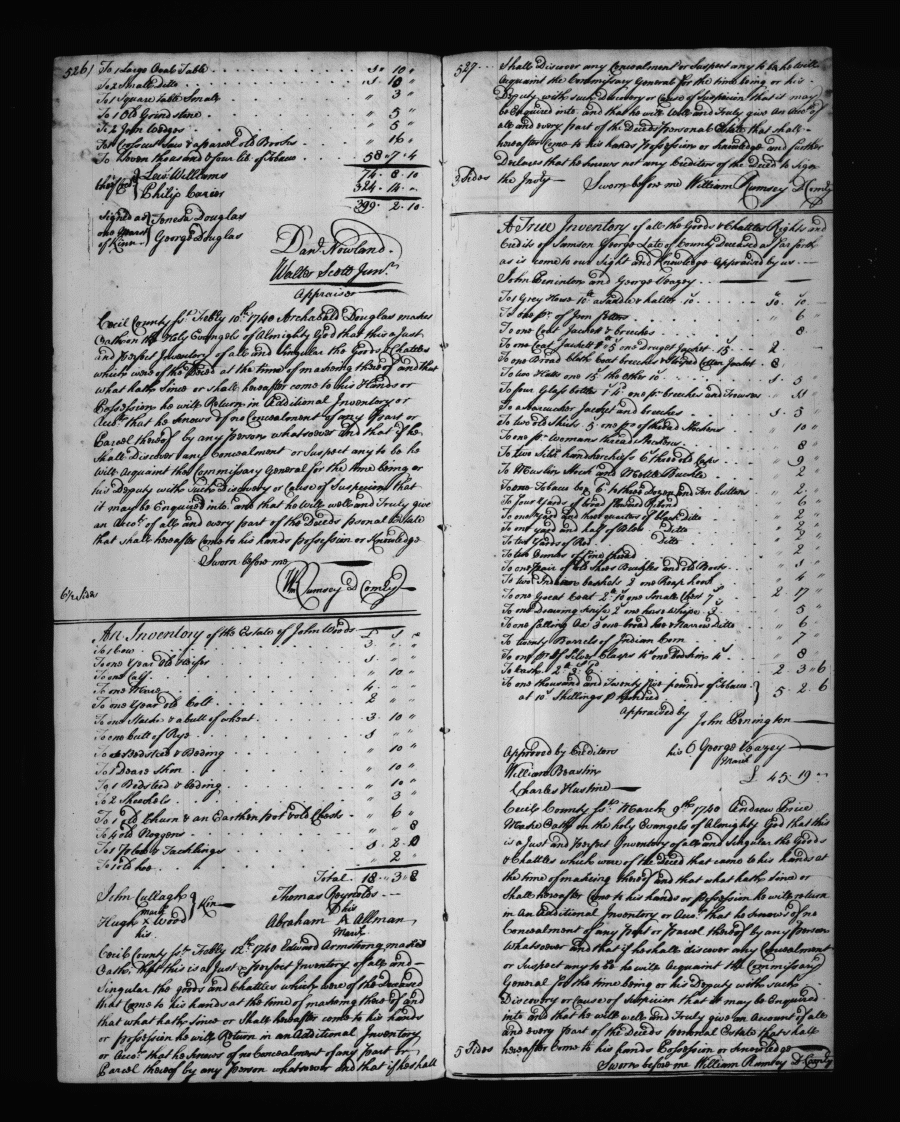 526 To 1 Large Oval Table 10
To 2 Small Ditto 10
To 1 Square table Small 3
To 1 Old Grindstone 5
To 2 Iron Wedges 5
To 1 Crosscut Saw & a parcel old Books 16
To Eleven thousand & four lb. of Tobaco 58 . 7 . 4
Lewis Williams 74 . 8 . 10
Philip Cazier 324 . 14 .
399 . 2 . 10
Signed as Teresa Douglas
one March
of Kinn George Douglas
Danl. Newland
Walter Scott Junr.
Appraisers
Cecil County ss. Febry 10th. 1740 Archabald Douglas makes
Oath on the Holy Evangels of Almighty God that this a Just
and Perfect Inventory of all and Singular the Goods & Chattles
which were of the Deced at the time of makeing thereof and that
what hath Since or shall hereafter come to his Hands or
Possession he will Return in Additional Inventory or
Acct. that he knows of no Concealment of any Part or
Parcel thereof by any person whatsoever and that if he
Shall Discover any Concealment or Suspect any to be he
will Acquaint the Commissary General for the time being or
his Deputy with such Discovery or Cause of Suspicion that
it may be Enquired into and that he will well and Truly give
an Acct. of all and every part of the Deceds psonal Estate
that shall hereafter come to his hands possession or Knowledge
Sworn before me
Wm. Rumsey D Comry
6½ Sides
An Inventory of the Estate of John Woods £ s
To 1 Cow 3
To one Year Old Heifer 1
To one Calf 10
To one Mare 4
To one Year old Colt 2
To one Stack & a butt of wheat 3 10
To one butt of Rye
To 1 Bedstead & Beding 10
To 1 Deare Skin
To 1 Bedstead & beding 10
To 2 3
To 1 Old Churn & an Earthen pot & old Chests 6
To 4 old Noggens 8
To 1 Plow & Tacklings
To 1 old hoe 2
Total . 18 . 3 . 8
John Cullagh Thomas Reynolds
mark Kin his
Hugh x Wood Abraham A Allman
his Mark
Cecil County ss. Febry 12th. 1740 Edward Armstrong makes
Oath that this is a Just & Perfect Inventory of all and
Singular the goods and Chattles which were of the Deceased
that Come to his hands at the time of makeing thereof and
that what hath since or Shall hereafter come to his hands
or possession he will Return in an Additional Inventory
or Acct. that he knows of no Concealment of any Part or
Parcel thereof by any person whatsoever and that if he shall
527 Shall Discover any Concealment or Suspect any to be he will
Acquaint the Commissary General for the time being or his
Deputy with such discovery or cause of Suspicion that it may
be Enquired into and that he will well and Truly give an Acct. of
all and every part of the Deceds personal Estate that shall
hereafter come to his hands Possession or knowledge and further
Declares that he knows not any Creditors of the Deced to Sign
3 Sides the Invty Sworn before me William Rumsey D Comry
A True Inventory of all the Goods & Chattles Rights and
Credits of Samson George Late of County Deceased as far forth
as is come to our Sight and knowledge Appraised by us
John Peninton and George Veazey
To 1 Grey Horse a Saddle & halter 10
To one pr. of Iron fetters 6
To one Coat Jacket & breeches 8
To one Coat Jacket one Druget Jacket 15 2
To one Broad Cloth Coat breeches & Striped Cotton Jacket 8
To two Hatts one 15 the other 10 5
To four Glass bottles one pr. breeches and Trowsers
To a Jacket and breeches 5
To two old Shirts 5 one pr. of thread Stockens 10
To one pr. womans thread Stockens
To two Silk handkerchiefs three old Caps 8
To Muslin Stock and Mettle Buckle 9
To one Tobaco box three Dozen and Ten buttons 2
To four Yards of broad flowerd Ribon 6
To one Yard and three quarters of black ditto 2
To one yard and half of Blew ditto 2
To ten Yards of Red ditto 2
To ten Ounces of fine thread 2
To one pair of old Shoes Buckles and old Boots
To two Indian baskets one Reap hook 4
To one Great Coat one Small Chest 2 17
To one Drawing knife one horse whipe 5
To one falling Ax one broad hoe & Narrow ditto 6
To twenty Barrels of Indian Corn 7
To one pr. of Silver Clasps one 8
To Cash 2 3 6
To one thousand and Twenty five pounds of Tobaco
at 10s. Shillings p hundred 5 2 6
Appraised by John Penington
Approved by Creditors his O George Veazey
William Beastin Mark
Charles Hustine £ 45 . 19
Cecil County ss. March 9th. 1740 Andrew Price
Makes Oath on the holy Evangels of Almighty God that this
is a Just and Perfect Inventory of all and Singular the Goods
& Chattles which were of the Deced that came to his hands at
the time of makeing thereof and that what hath since or
Shall hereafter Come to his hands or possession he will return
in An Additional Inventory or Acct. that he knows of no
Concealment of any Part or Parcel thereof by any Person
Whatsoever and that if he shall discover any Concealment
or Suspect any to be he will Acquaint the Commissary
General for the time being or his Deputy with such
Discovery or Cause of Suspicion that it may be Enquired
into and that he will well and Truly give an Account of all
and every part of the Deceds personal Estate that shall
5 Sides hereafter Come to his hands Possession or knowledge
Sworn before me William Rumsey D Comry